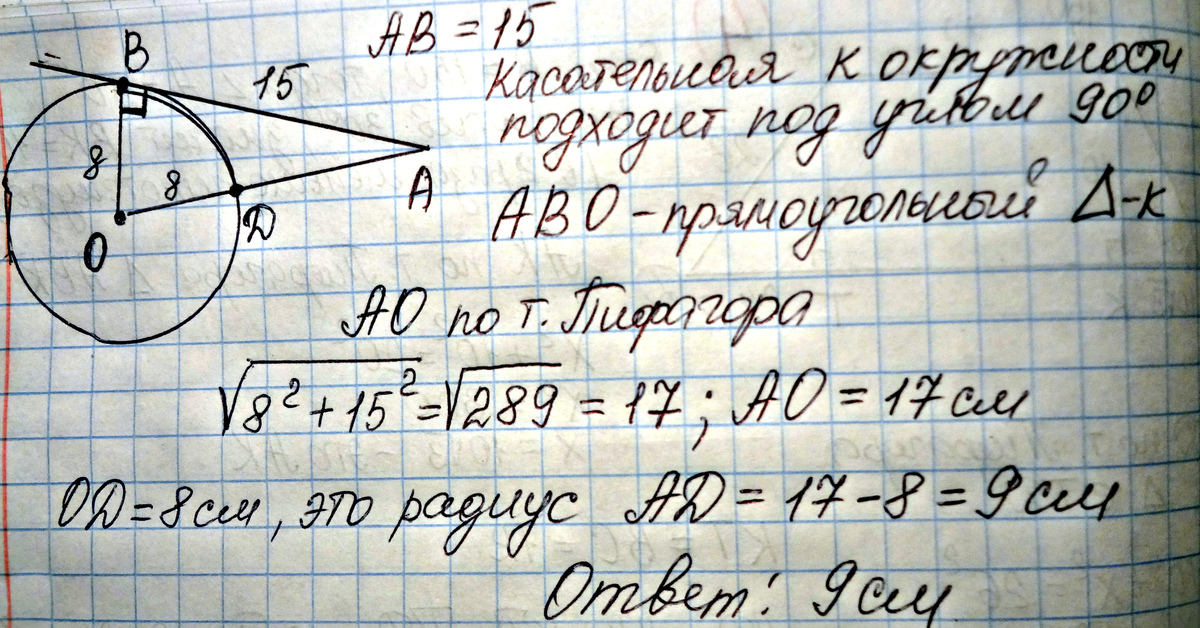 B
AB = 15
15
Касательная к окружности
подходит под углом 90°
8
8
A
D
O
ABO - прямоугольный Δ-к
AO по т. Пифагора
√8² + 15² = √289 = 17 ; AO = 17 см
OD = 8 см, это радиус AD = 17 - 8 = 9 см
Ответ: 9 см